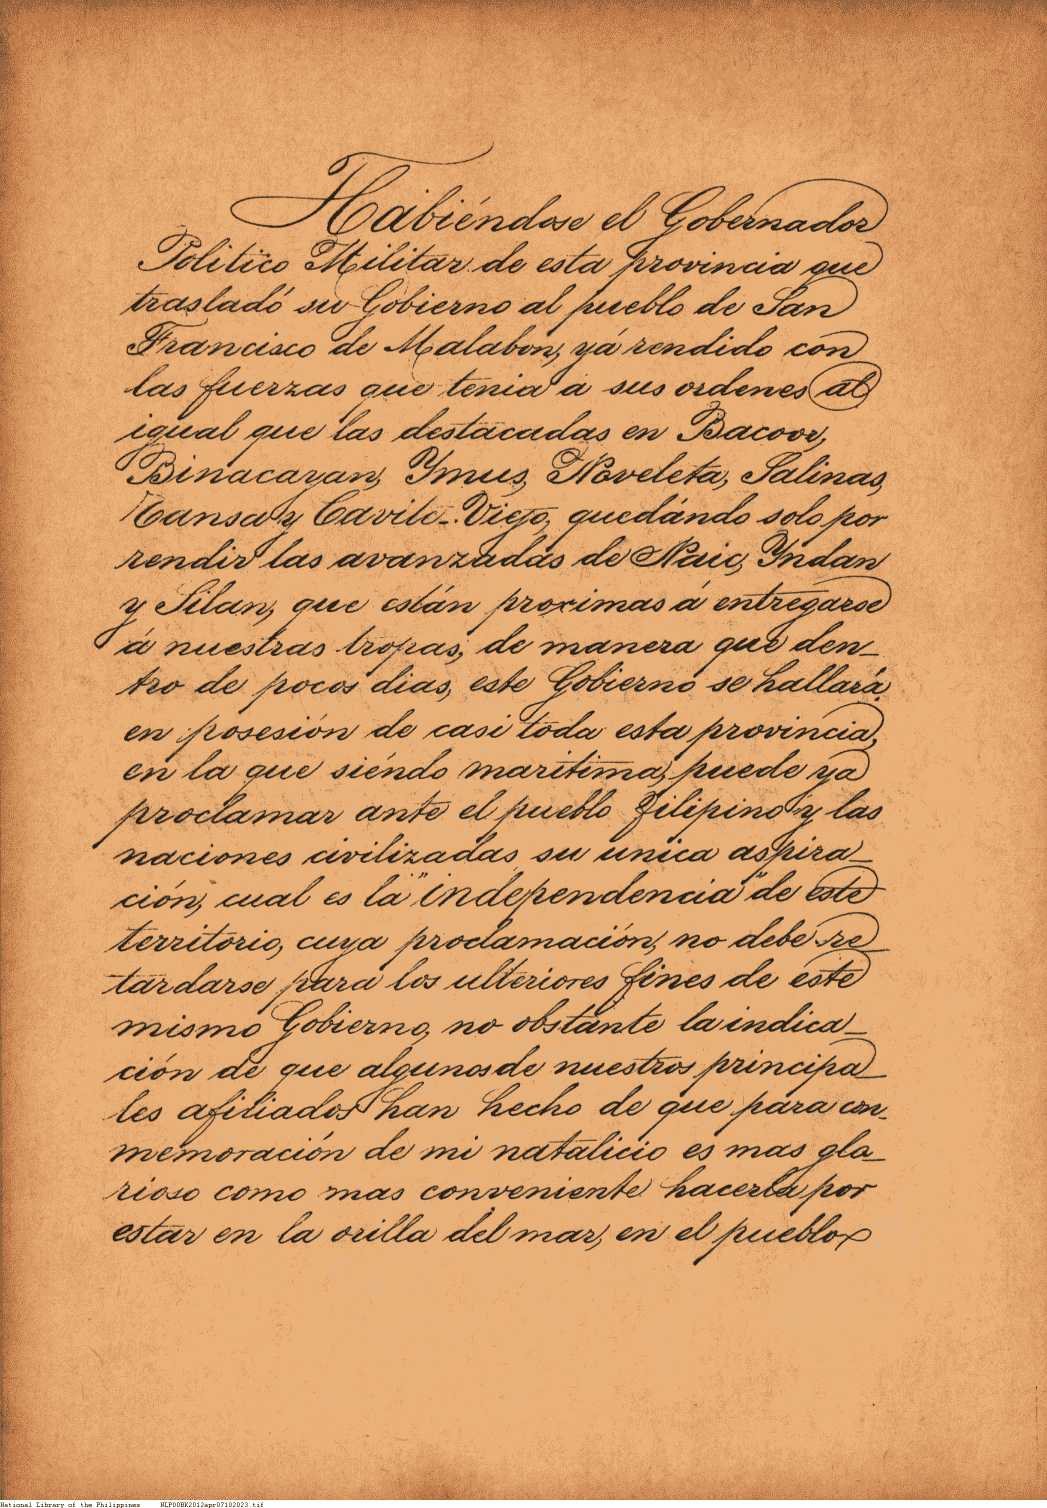 Habiéndose el Gobernador
Politico Militar de esta provincia que
trasladó su Gobierno al pueblo de San
Francisco de Malabon, yá rendido con
las fuerzas que tenia á sus ordenes al
igual que las destacadas en Bacoor,
Binacayan, Ymus, Noveleta, Salinas,
Tansa y Cavite-Viejo, quedándo solo por
rendir las avanzadas de Naic, Yndan
y Silan, que están proximas á entregarse
á nuestras tropas, de manera que den-
tro de pocos dias, este Gobierno se hallará
en posesión de casi toda esta provincia,
en la que siéndo maritima, puede ya
proclamar ante el pueblo filipino y las
naciones civilizadas su unica aspira-
ción, cual es la "independencia" de este
territorio, cuya proclamación, no debe re-
tardarse para los ulteriores fines de este
mismo Gobierno, no obstante la indica-
ción de que algunos de nuestros principa-
les afiliados han hecho de que para con-
memoración de mi natalicio es mas glo-
rioso como mas conveniente hacerla por
estar en la orilla del mar, en el pueblo
National Library of the Philippines NLPOOBK2012apr07102023.tif